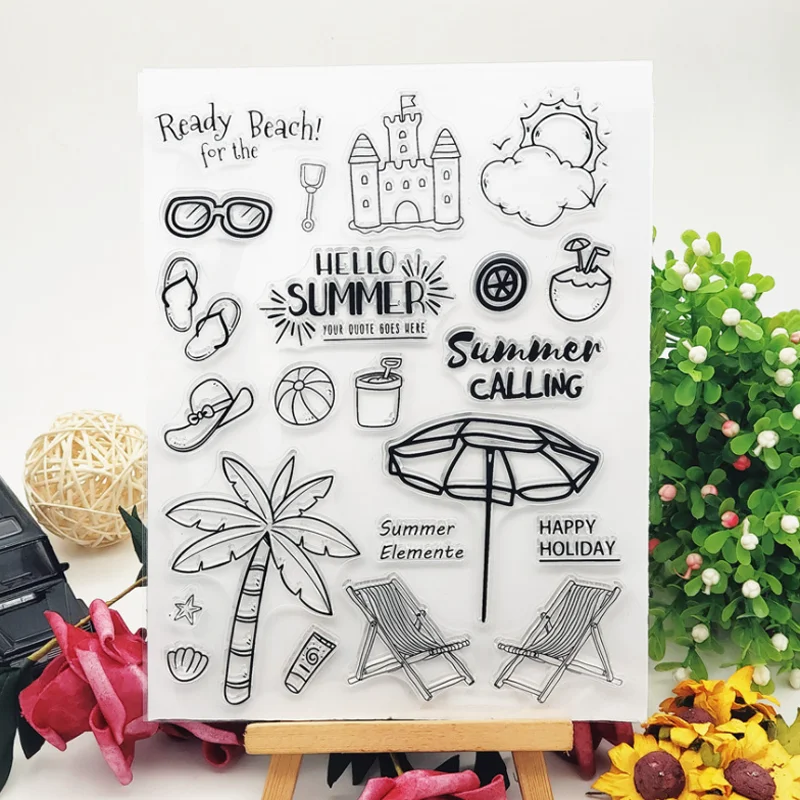 Ready Beach!
for the
HELLO
SUMMER
YOUR QUOTE GOES HERE
Summer
CALLING
Summer
Elemente
HAPPY
HOLIDAY